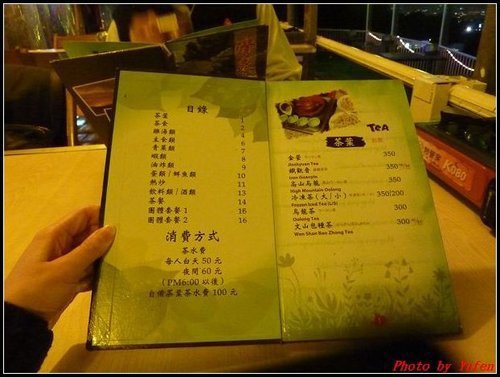 目錄
茶葉 1
茶食 2
雞湯類 4
主食類 6
青菜類 7
蝦類 8
油炸類 9
蛋類/鮮魚類 10
熱炒 11
飲料類/酒類 13
茶餐 14
團體套餐1 16
團體套餐2 16
消費方式
茶水費
每人白天50元
夜間60元
(PM6:00以後)
自備茶葉茶水費100元
TEA
茶葉
金萱 350
Jinshyuan Tea
鐵觀音 350
Iron Guanyin
高山烏龍 350
High Mountain Oolong
冷凍茶(大/小) 350/200
Frozen Iced Tea (L/S)
烏龍茶 300
Oolong Tea
文山包種茶 300
Wen Shan Bao Zhong Tea
Photo by Yufen